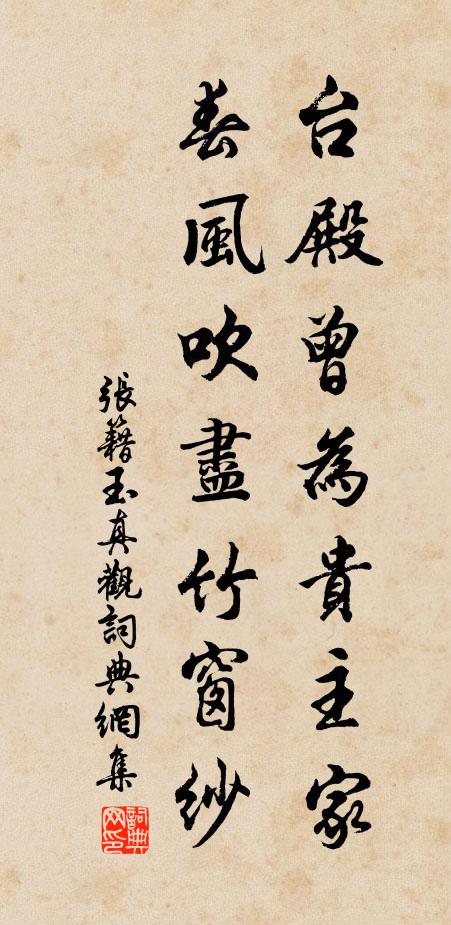 台殿曾為貴主家
春風吹盡竹窗紗
張籍玉真觀詞典網集
詞典網印